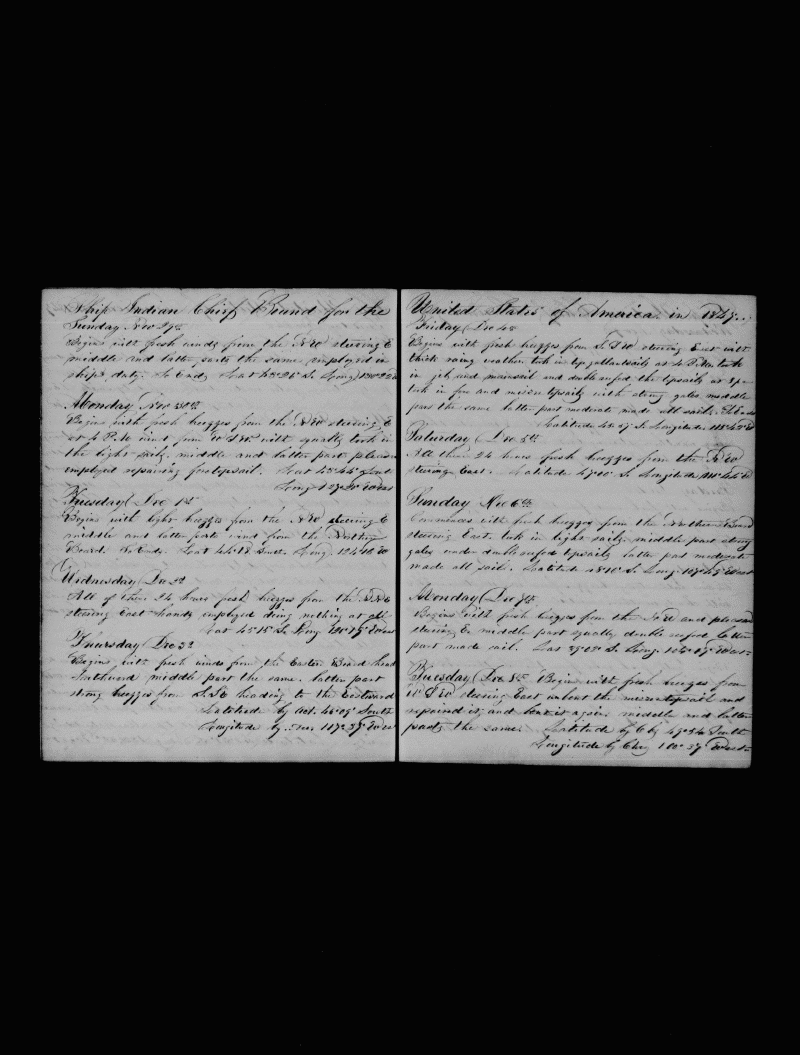 Ship Indian Chief Bound for the
Sunday Nov 29th
Begins with fresh winds from the NW steering E
middle and latter parts the same employed in
ships duty. So Ends Lat 43° 26 S. Long
Monday Nov 30th
Begins with fresh breezes from the NW steering E
at 4 P.M. wind from with squally took in
the light sails, middle and latter part pleasant
employed repairing foretopsail. Lat 43° 44 South
Long 127° 20 West
Tuesday Dec 1st
Begins with light breezes from the NW steering E
middle and latter parts wind from the Northern
Board. So Ends. Lat 44° 18 South. Long 124° 10 W
Wednesday Dec 2d
All of these 24 hours fresh breezes from the
steering East hands employed doing nothing at all
Lat 45° 15 S. Long West
Thursday Dec 3d
Begins with fresh winds from the Eastern Board head
Southward middle part the same. latter part
strong breezes from heading to the Eastward
Latitude by Act. 46° 09 South
Longitude by 117° 39 West
United States of America in 1847
Friday Dec 4th
Begins with fresh breezes from steering East with
thick rainy weather took in topgallantsails at 4 P.M. took
in jib and mainsail and doublereefed the topsails at
took in fore and mizentopsails with strong gales middle
part the same latter part moderate made all sail. So Ends
Latitude Longitude
Saturday Dec 5th
All these 24 hours fresh breezes from the
steering East. Latitude S. Longitude
Sunday Dec 6th
Commences with fresh breezes from the Northern Board
steering East. took in light sails middle part strong
gales under doublereefed topsails latter part moderate
made all sail. Latitude S. Long West
Monday Dec 7th
Begins with fresh breezes from the and pleasant
steering E middle part squally double reefed latter
part made sail. Lat S. Long. West
Tuesday Dec 8th Begins with fresh breezes from
steering East unbent the mizentopsail and
repaired it, and bent it again middle and latter
parts the same. Latitude by 49° 54 South
Longitude by 100° 57 West